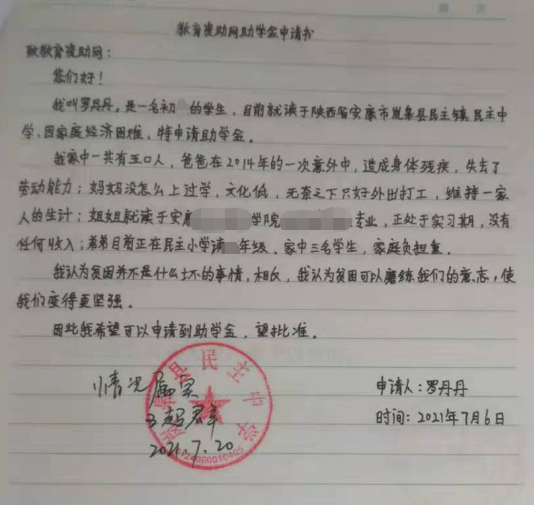 教育援助网助学金申请书
致教育援助网:
您们好!
我叫罗丹丹,是一名初 的学生,目前就读于陕西省安康市岚皋县民主镇民主中
学,因家庭经济困难,特申请助学金。
我家中一共有五口人,爸爸在2014年的一次意外中,造成身体残疾,失去了
劳动能力;妈妈没怎么上过学,文化低,无奈之下只好外出打工,维持一家
人的生计;姐姐就读于安康 学院 专业,正处于实习期,没有
任何收入;弟弟目前正在民主小学读 年级。家中三名学生,家庭负担重。
我认为贫困并不是什么坏的事情,相反,我认为贫困可以磨练我们的意志,使
我们变得更坚强。
因此我希望可以申请到助学金,望批准。
情况属实
申请人:罗丹丹
时间:2021年7月6日
2021.7.20
县民主中学